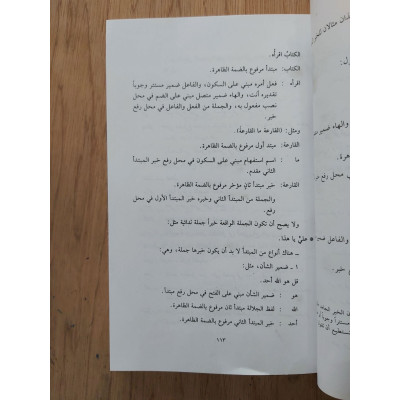 الكتابُ اقرأْه.
الكتاب: مبتدأ مرفوع بالضمة الظاهرة.
اقرأه : فعل أمره مبني على السكون، والفاعل ضمير مستتر وجوباً
تقديره أنت، والهاء ضمير متصل مبني على الضم في محل
نصب مفعول به، والجملة من الفعل والفاعل في محل رفع
خبر.
ومثل: (القارعة ما القارعة).
القارعة: مبتدأ أول مرفوع بالضمة الظاهرة.
ما : اسم استفهام مبني على السكون في محل رفع خبر المبتدأ
الثاني مقدم.
القارعة: خبر مبتدأ ثانٍ مؤخر مرفوع بالضمة الظاهرة.
والجملة من المبتدأ الثاني وخبره خبر المبتدأ الأول في محل
رفع.
ولا يصح أن تكون الجملة الواقعة خبراً جملة ندائية مثل:
* عليّ يا هذا.
ــ هناك أنواع من المبتدأ لا بد أن يكون خبرها جملة، وهي:
١ ــ ضمير الشأن، مثل:
قل هو الله أحد.
هو : ضمير الشأن مبني على الفتح في محل رفع مبتدأ.
الله : لفظ الجلالة مبتدأ ثان مرفوع بالضمة الظاهرة.
أحد : خبر المبتدأ الثاني مرفوع بالضمة الظاهرة.
١١٣